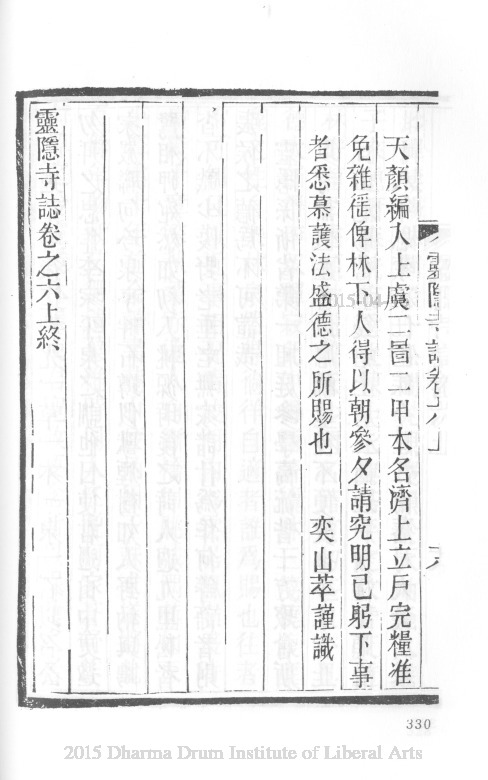 靈隱寺誌卷六上
六
天顏編入上虞二啚二甲本名濟上立戶完糧准
免雜徭俾林下人得以朝參夕請究明已躬下事
者悉慕護法盛德之所賜也 奕山萃謹識
靈隱寺誌卷之六上終
330
2015 Dharma Drum Institute of Liberal Arts